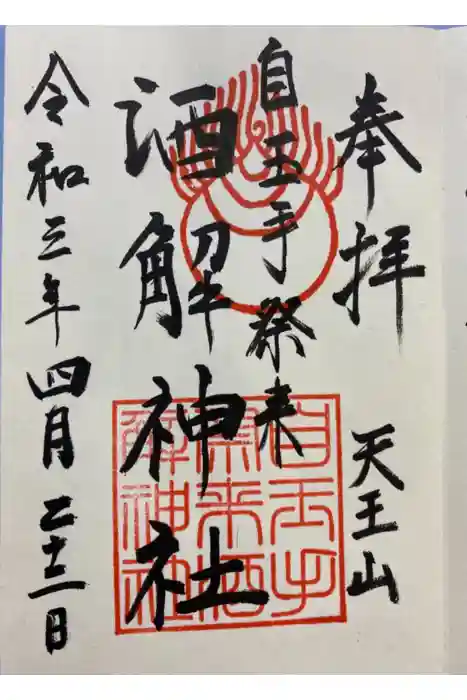 奉拝
天王山
自玉手祭来
酒解神社
令和三年四月二十二日
自玉手
祭来酒
解神社